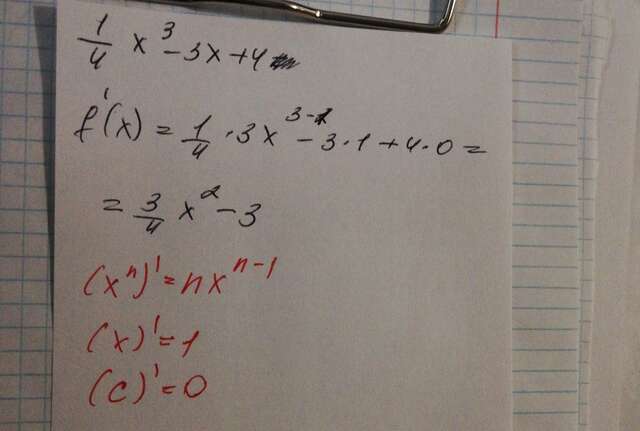 1/4 x³ - 3x + 4
f'(x) = 1/4 · 3x³⁻¹ - 3 · 1 + 4 · 0 =
= 3/4 x² - 3
(xⁿ)' = nxⁿ⁻¹
(x)' = 1
(c)' = 0